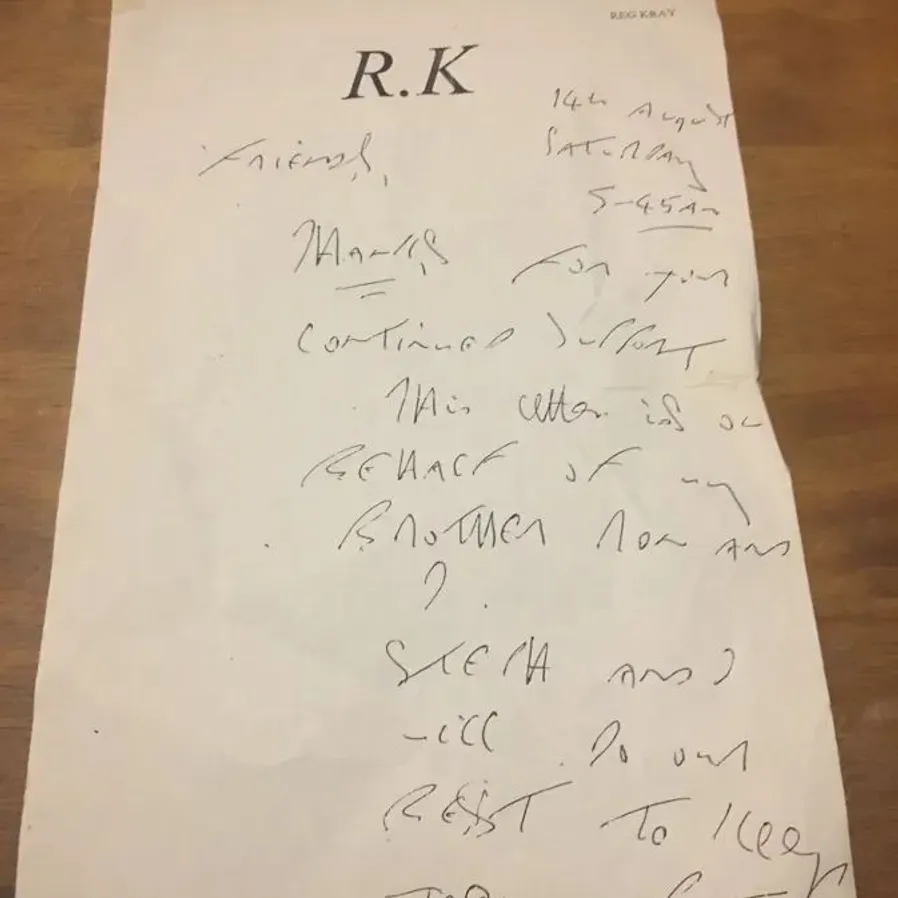 REG KRAY
R.K
14th August
SATURDAY
5-45AM
FRIENDS,
THANKS, FOR your
CONTINUED SUPPORT
THis letter is on
BEHALF OF my
BROTHER RON AND
I.
STEPH AND I
will Do our
BEST To Keep